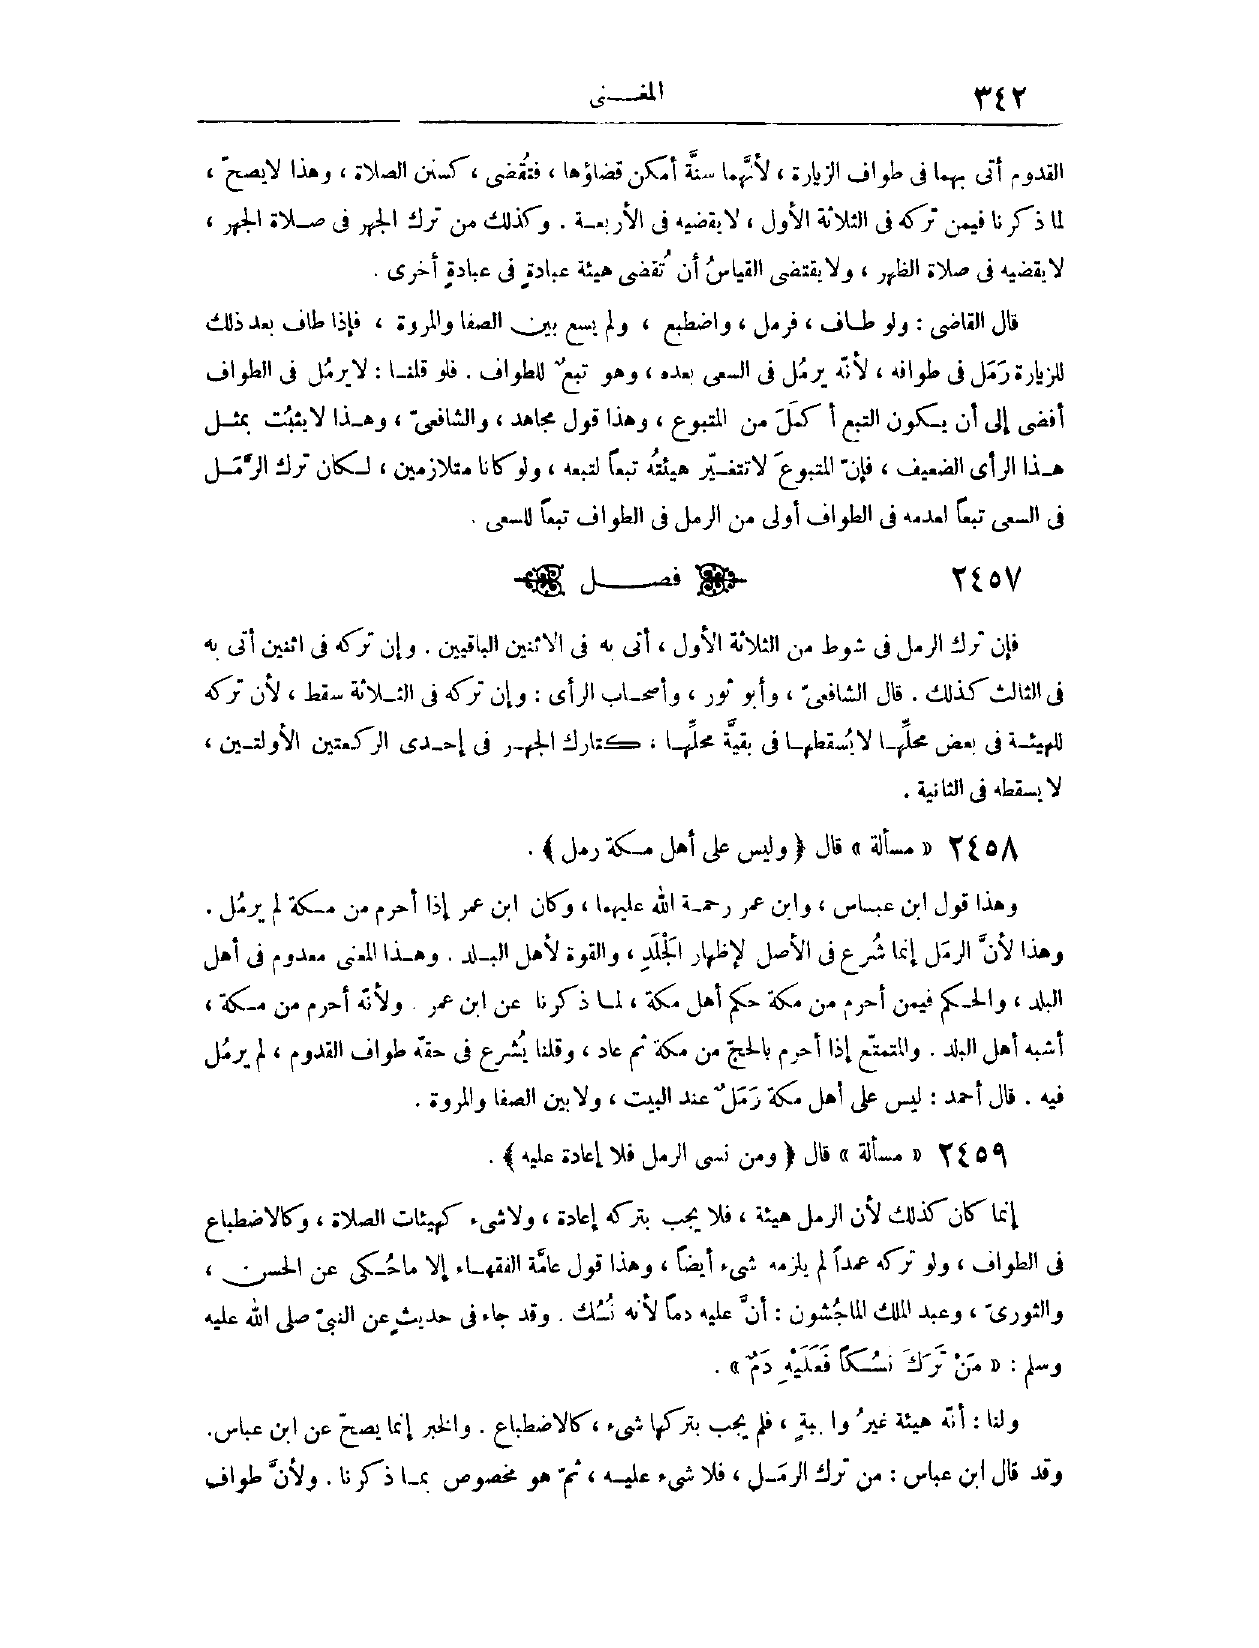 ٣٤٢ المغـــنى
القدوم أتى بهما فى طواف الزيارة ، لأنَّهما سنَّة أمكن قضاؤها ، فتُقضى ، كسنن الصلاة ، وهذا لايصحّ ،
لما ذكرنا فيمن تركه فى الثلاثة الأول ، لا يقضيه فى الأربعـة . وكذلك من ترك الجهر فى صـلاة الجهر ،
لا يقضيه فى صلاة الظهر ، ولا يقتضى القياسُ أن تُقضى هيئة عبادةٍ فى عبادةٍ أخرى .
قال القاضى : ولو طـاف ، فرمل ، واضطبع ، ولم يسع بين الصفا والمروة ، فإذا طاف بعد ذلك
للزيارة رَمَل فى طوافه ، لأنّه يرمُل فى السعى بعده ، وهو تبعٌ للطواف . فلو قلنـا : لايرمُل فى الطواف
أفضى إلى أن يـكون التبع أكملَ من المتبوع ، وهذا قول مجاهد ، والشافعىّ ، وهـذا لا يثبُت بمثـل
هـذا الرأى الضعيف ، فإنّ المتبوعَ لا تتغـيّر هيئتُه تبعاً لتبعه ، ولو كانا متلازمين ، لـكان ترك الرَّمَـل
فى السعى تبعاً لعدمه فى الطواف أولى من الرمل فى الطواف تبعاً للسعى .
٢٤٥٧ فصـــل
فإن ترك الرمل فى شوط من الثلاثة الأول ، أتى به فى الاثنين الباقيين . وإن تركه فى اثنين أتى به
فى الثالث كذلك . قال الشافعىّ ، وأبو ثور ، وأصحـاب الرأى : وإن تركه فى الثـلاثة سقط ، لأن تركه
للهيئـة فى بعض محلِّهـا لايُسقطهـا فى بقيَّة محلِّهـا ، كـتارك الجهـر فى إحـدى الركعتين الأولتـين ،
لا يسقطه فى الثانية .
٢٤٥٨ « مسألة » قال ﴿ وليس على أهل مـكة رمل ﴾ .
وهذا قول ابن عبـاس ، وابن عمر رحمـة الله عليهما ، وكان ابن عمر إذا أحرم من مـكة لم يرمُل .
وهذا لأنَّ الرمَل إنما شُرع فى الأصل لإظهار الجَلَدِ ، والقوة لأهل البـلد . وهـذا المعنى معدوم فى أهل
البلد ، والحـكم فيمن أحرم من مكة حكم أهل مكة ، لمـا ذكرنا عن ابن عمر . ولأنّه أحرم من مـكة ،
أشبه أهل البلد . والمتمتّع إذا أحرم بالحجّ من مكة ثم عاد ، وقلنا يُشرع فى حقّه طواف القدوم ، لم يرمُل
فيه . قال أحمد : ليس على أهل مكة رَمَلٌ عند البيت ، ولا بين الصفا والمروة .
٢٤٥٩ « مسألة » قال ﴿ ومن نسى الرمل فلا إعادة عليه ﴾ .
إنما كان كذلك لأن الرمل هيئة ، فلا يجب بتركه إعادة ، ولاشىء كهيئات الصلاة ، وكالاضطباع
فى الطواف ، ولو تركه عمداً لم يلزمه شىء أيضاً ، وهذا قول عامَّة الفقهـاء إلا ماحُـكى عن الحسن ،
والثورىّ ، وعبد الملك الماجُشون : أنَّ عليه دماً لأنه نُسُك . وقد جاء فى حديثٍ عن النبىّ صلى الله عليه
وسلم : « مَنْ تَرَكَ نُسُـكاً فَعَلَيْهِ دَمٌ » .
ولنا : أنّه هيئة غيرُ واجبةٍ ، فلم يجب بتركها شىء ، كالاضطباع . والخبر إنما يصحّ عن ابن عباس.
وقد قال ابن عباس : من ترك الرمَـل ، فلا شىء عليـه ، ثمّ هو مخصوص بمـا ذكرنا . ولأنَّ طواف